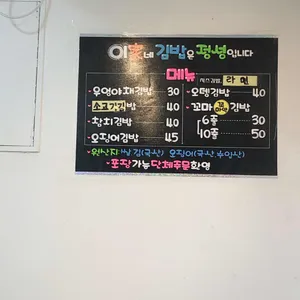 이家네 김밥은 평녕입니다
메뉴
치즈김밥, 라면
- 우엉야채김밥 30
- 소고기김밥 40
- 참치김밥 40
- 오징어김밥 45
- 오뎅김밥 40
- 꼬마 김밥
6종 30
10종 50
- 원산지: 쌀, 김(국산) 오징어(국산
- 포장가능 단체주문환영